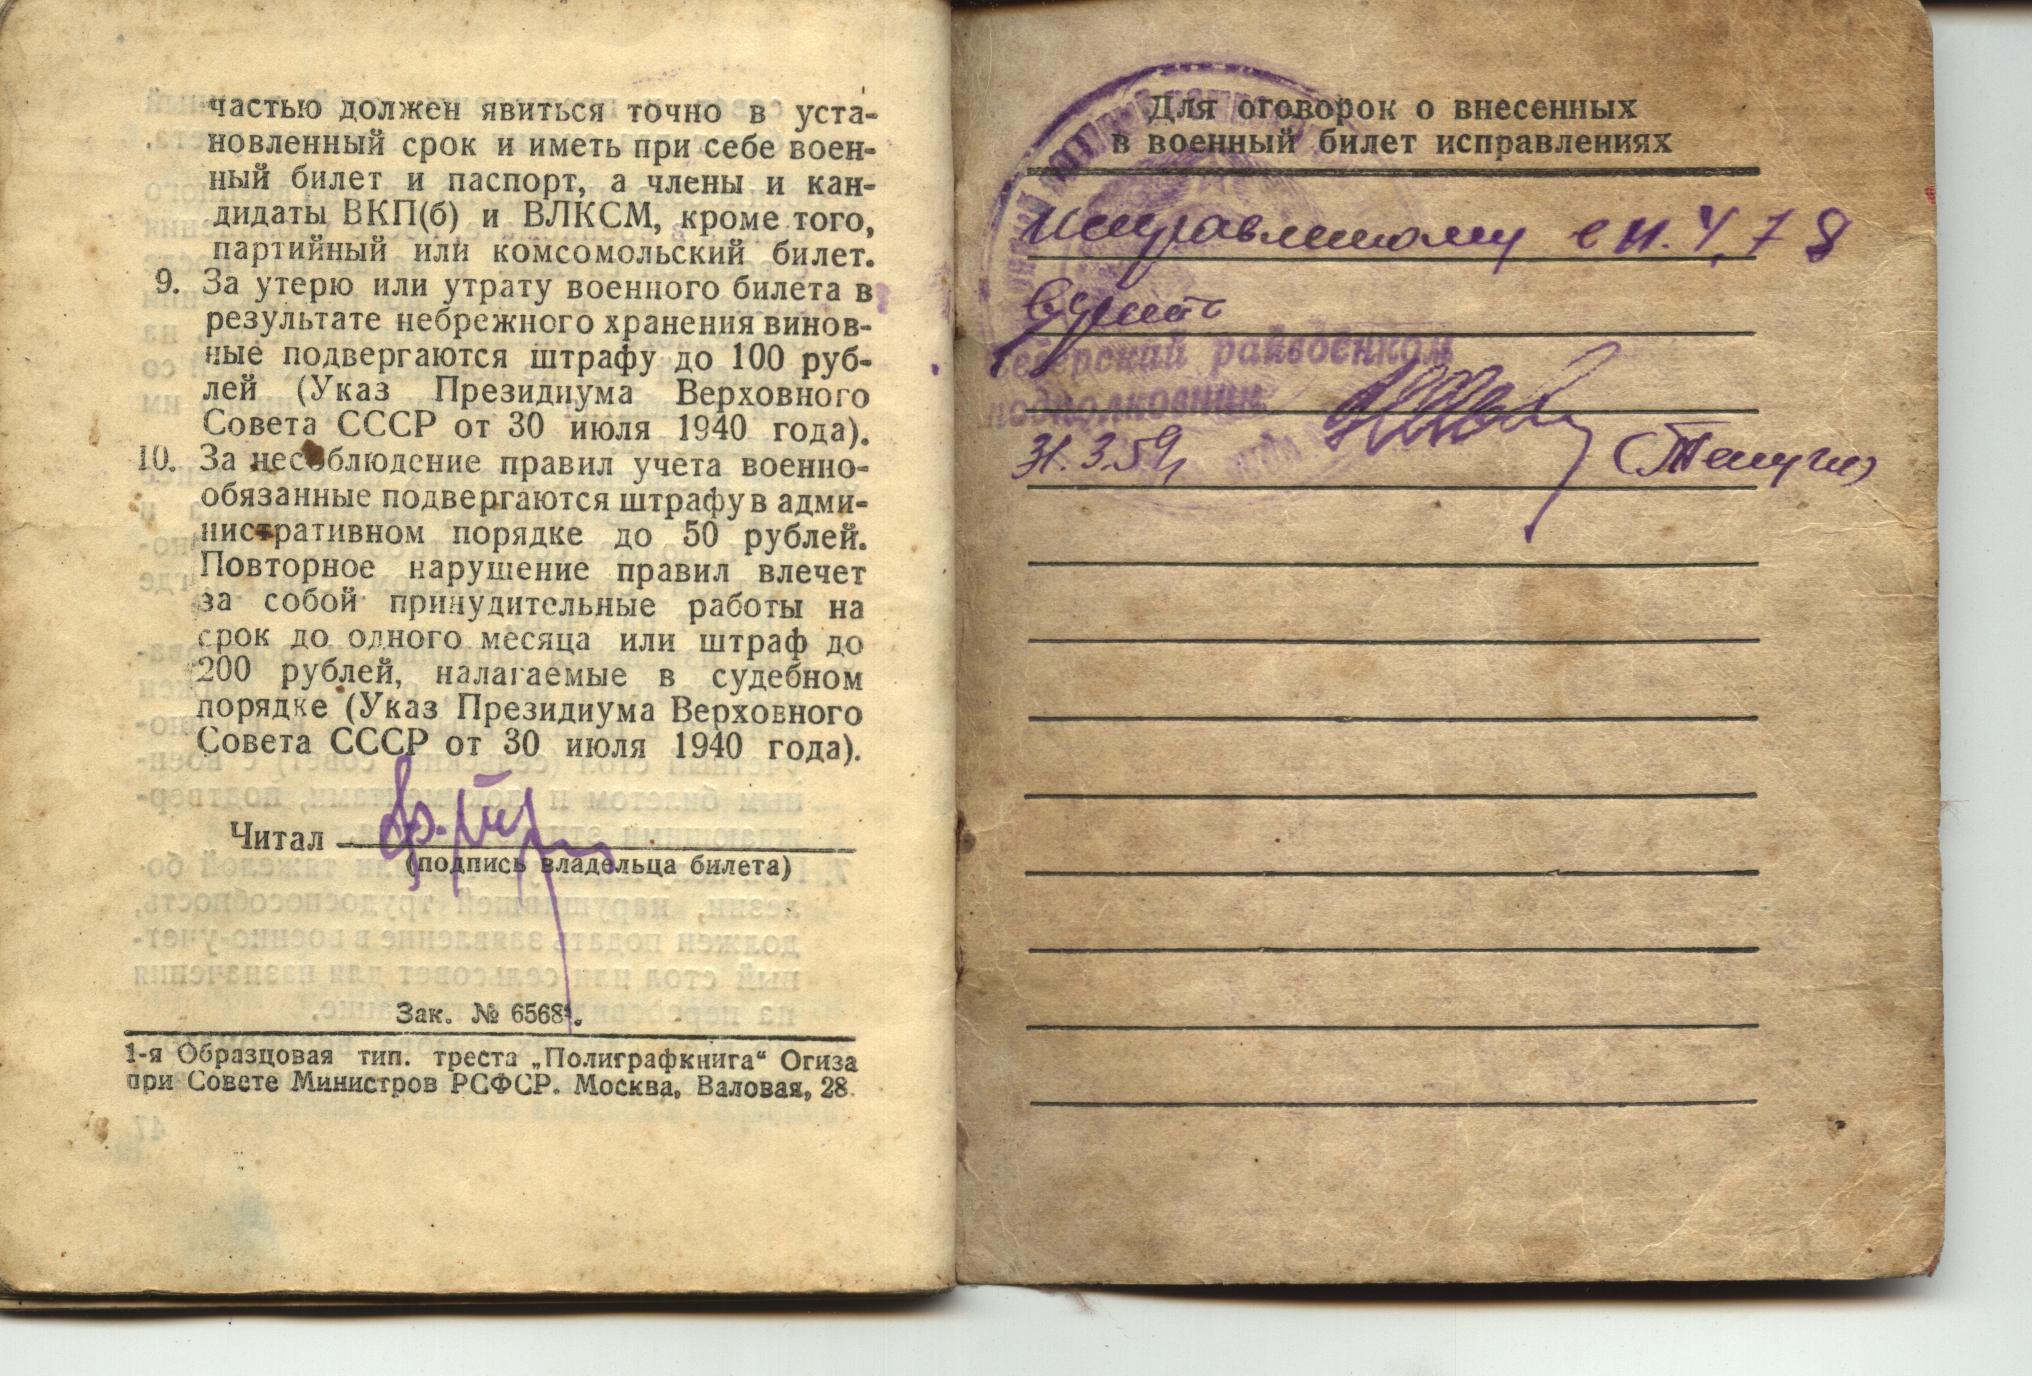 частью должен явиться точно в уста-
новленный срок и иметь при себе воен-
ный билет и паспорт, а члены и кан-
дидаты ВКП(б) и ВЛКСМ, кроме того,
партийный или комсомольский билет.
9. За утерю или утрату военного билета в
результате небрежного хранения винов-
ные подвергаются штрафу до 100 руб-
лей (Указ Президиума Верховного
Совета СССР от 30 июля 1940 года).
10. За несоблюдение правил учета военно-
обязанные подвергаются штрафу в адми-
нистративном порядке до 50 рублей.
Повторное нарушение правил влечет
за собой принудительные работы на
срок до одного месяца или штраф до
200 рублей, налагаемые в судебном
порядке (Указ Президиума Верховного
Совета СССР от 30 июля 1940 года).
Читал
(подпись владельца билета)
Зак. № 6568.
1-я Образцовая тип. треста „Полиграфкнига“ Огиза
при Совете Министров РСФСР. Москва, Валовая, 28
Для оговорок о внесенных
в военный билет исправлениях
Исправленному в п. 4, 7 8
верить
райвоенком
подполковник
31.3.59г